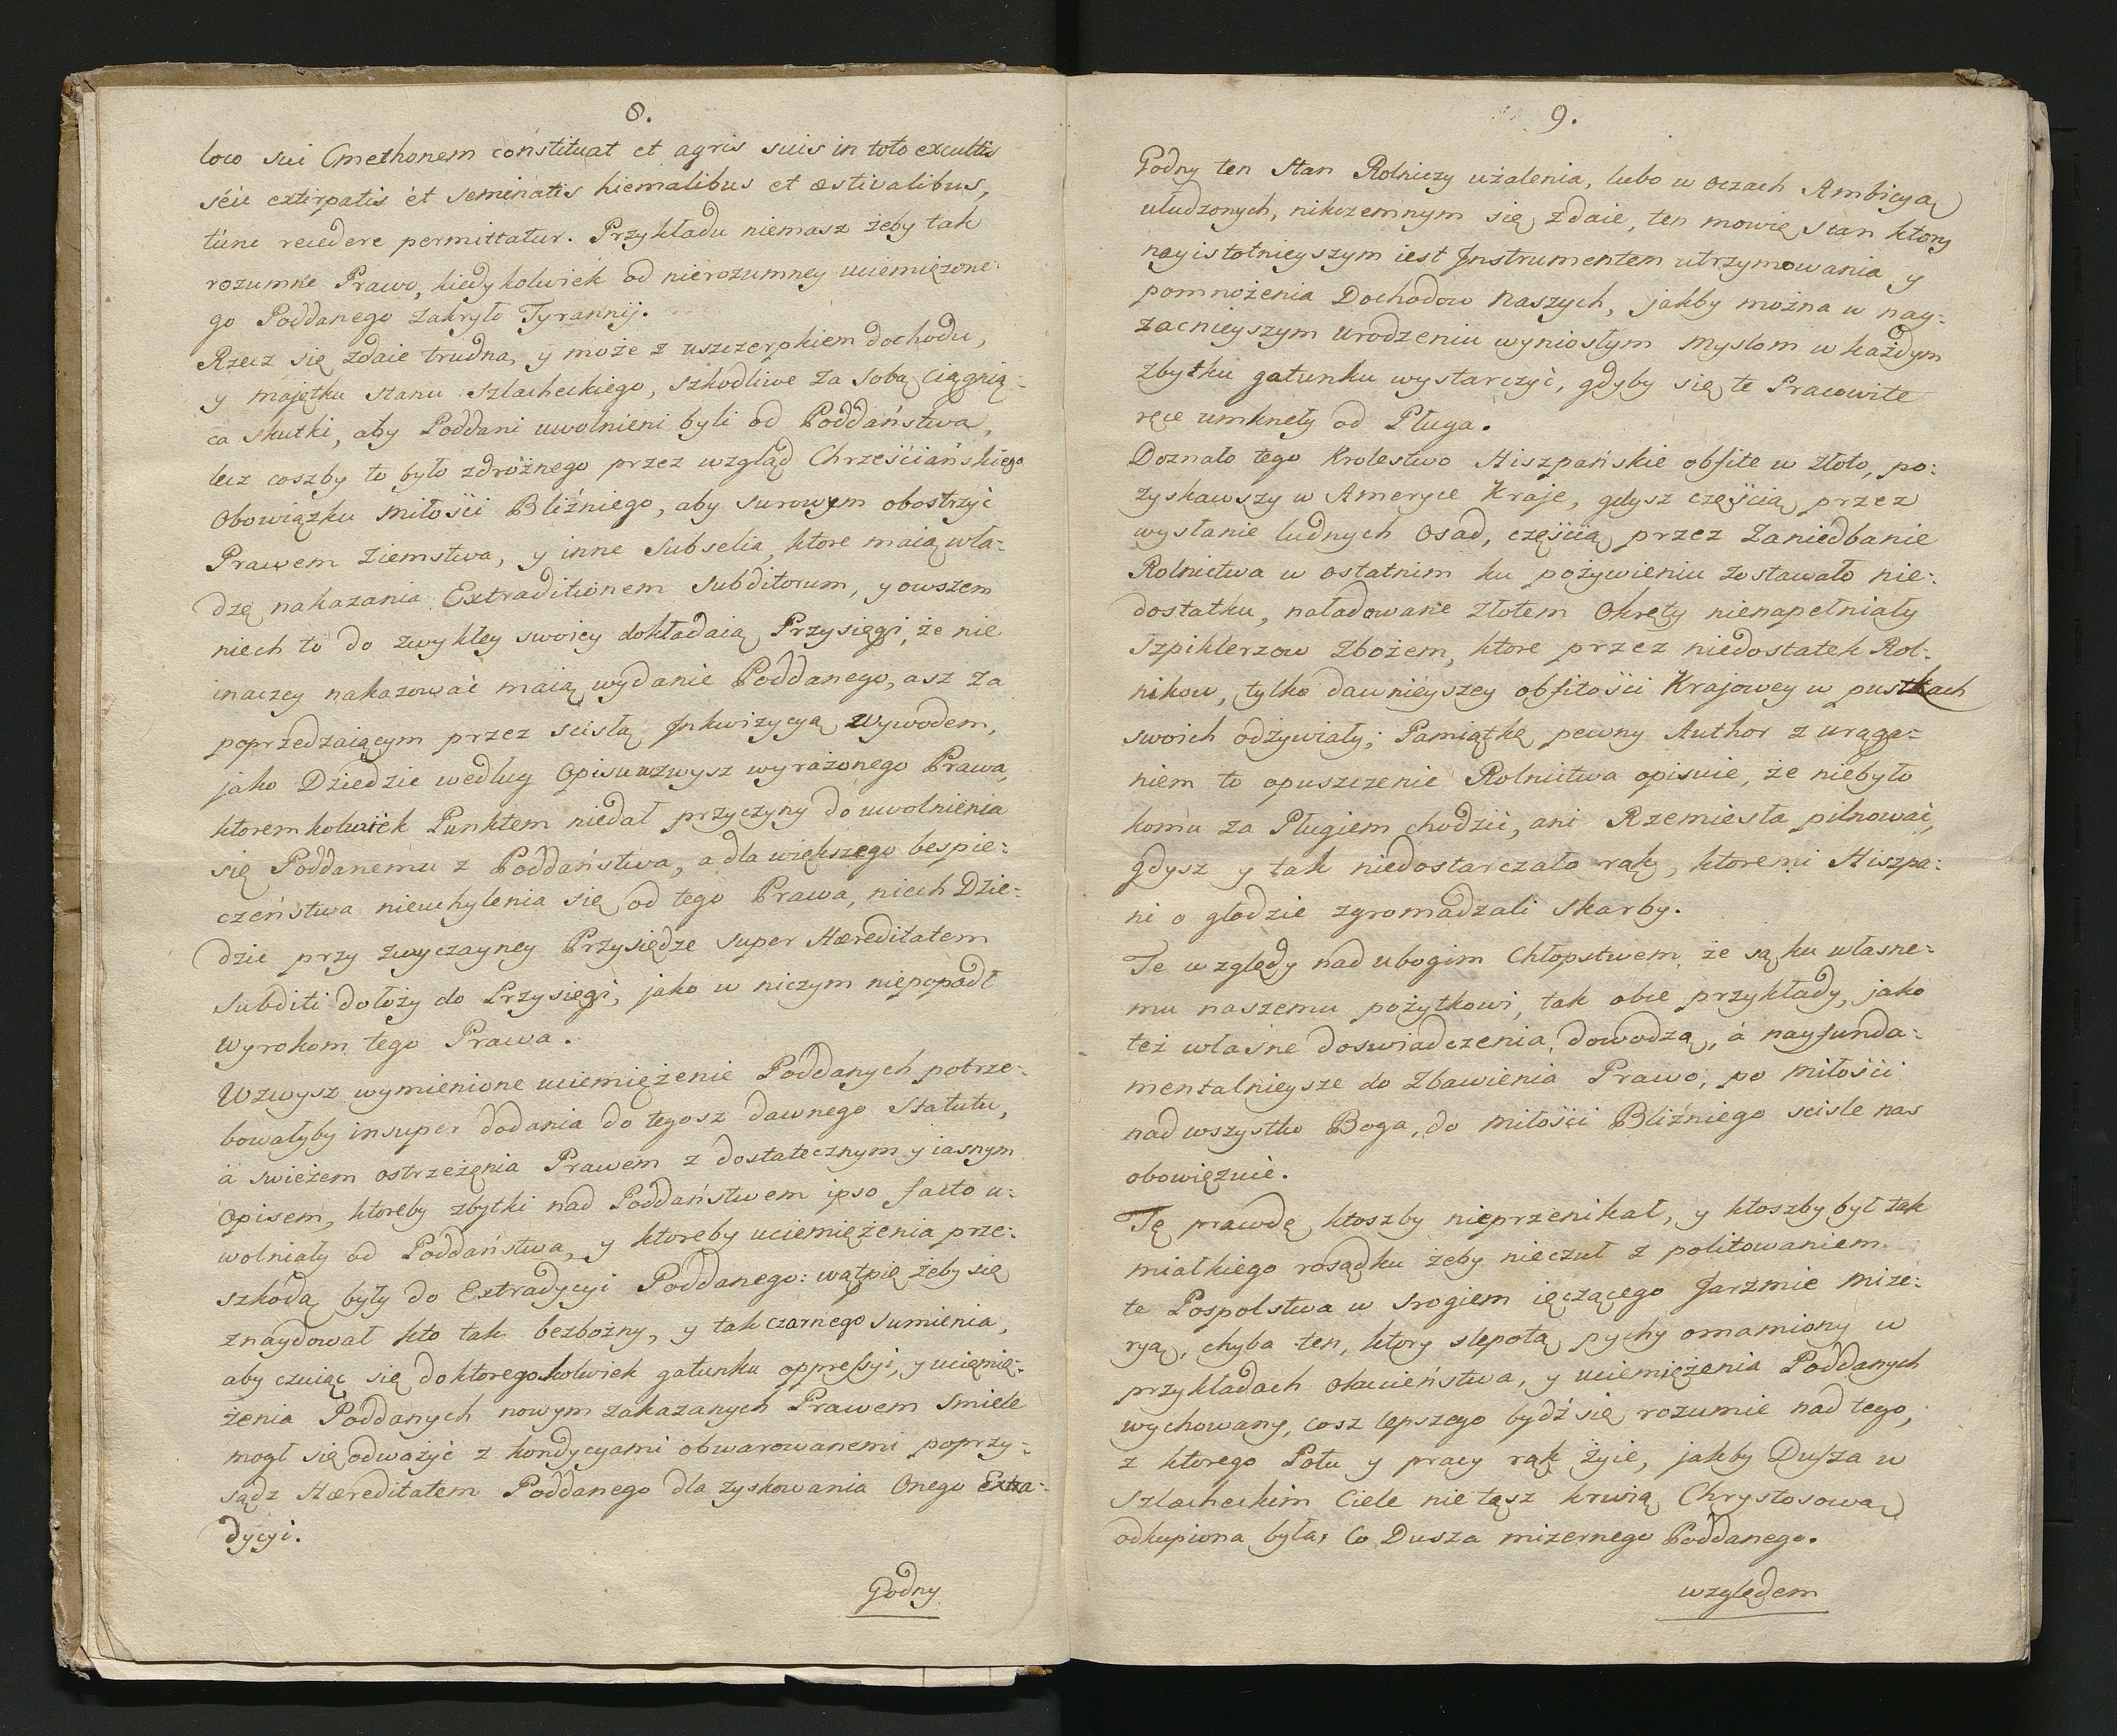 8.
loco sui Cmethonem constituat et agris suis in toto excultis
séu extirpatis et seminatis hiemalibus et æstivalibus,
tunc recedere permittatur. Przykładu niemasz żeby tak
rozumne Prawo, kiedykolwiek od nierozumney uciemiężone-
go Poddanego zakryło Tyrannij.
Rzecz się zdaie trudna, y może z uszczerpkiem dochodu,
y majętku stanu szlacheckiego, szkodliwe za sobą ciągnią-
ca skutki, aby Poddani uwolnieni byli od Poddaństwa,
lecz coszby to było zdrożnego przez wzgląd Chrześciańskiego
Obowiązku Miłości Bliźniego, aby surowym obostrzyć
Prawem Ziemstwa, y inne Subselia, ktore maią wła-
dzę nakazania Extraditionem Subditorum, y owszem
niech to do zwykłey swoiey dokładaią Przysięgi, że nie
inaczey nakazować maią wydanie Poddanego, asz za
poprzedzaiącym przez scisłą Jnkwizycyą Wywodem,
jako Dziedzic według Opisu wzwysz wyrażonego Prawa,
ktoremkolwiek Punktem niedał przyczyny do uwolnienia
się Poddanemu z Poddaństwa, a dla większego bespie-
czeństwa nieuchylenia się od tego Prawa, niech Dzie-
dzic przy zwyczayney Przysiędze super Hæreditatem
Subditi dołoży do Przysięgi, jako w niczym niepopadł
Wyrokom tego Prawa.
Wzwysz wymienione uciemiężenie Poddanych potrze-
bowałyby insuper dodania do tegosz dawnego Statutu,
á swieżem ostrzeżęnia Prawem z dostatecznym y iasnym
Opisem, ktoreby zbytki nad Poddaństwem ipso facto u-
wolniały od Poddaństwa, y ktoreby uciemiężenia prze-
szkodą były do Extradycyi Poddanego: wątpię żeby się
znaydował kto tak bezbożny, y tak czarnego Sumienia,
aby czuiąc się do ktoregokolwiek gatunku oppressyi, y uciemię-
żenia Poddanych nowym zakazanych Prawem Smiele
mogł się odważyć z kondycyami obwarowanemi poprzy-
sądz Hæreditatem Poddanego dla zyskowania Onego Extra-
dycyi.
Godny
9.
Godny ten Stan Rolniczy użalenia, lubo w oczach Ambicyą
ułudzonych, nikczemnym się zdaie, ten mowię stan ktory
nayistotnieyszym iest Jnstrumentem utrzymowania y
pomnożenia Dochodow Naszych, jakby można w nay-
zacnieyszym urodzeniu wyniosłym Myslom w każdym
zbytku gatunku wystarczyć, gdyby się te Pracowite
ręce umknęły od Pługa.
Doznało tego Krolestwo Hiszpańskie obfite w Złoto, po-
zyskawszy w Ameryce Kraje, gdysz częścią przez
wysłanie ludnych Osad, częścią przez Zaniedbanie
Rolnictwa w ostatnim ku pożywieniu zostawało nie-
dostatku, naładowane Złotem Okręty nienapełniały
Szpiklerzow Zbożem, ktore przez niedostatek Rol-
nikow, tylko dawnieyszey obfitości Krajowey w pustkach
swoich odżywiały; Pamiątkę pewny Author z urąga-
niem to opuszczenie Rolnictwa opisuie, że niebyło
komu za Pługiem chodzić, ani Rzemiesła pilnować,
gdysz y tak niedostarczało rąk, ktoremi Hiszpa-
ni o głodzie zgromadzali Skarby.
Te względy nad ubogim Chłopstwem że są ku własne-
mu naszemu pożytkowi, tak obce przykłady, jako
też własne doswiadczenia dowodzą, á nayfunda-
mentalnieysze do Zbawienia Prawo, po Miłości
nad wszystko Boga, do Miłości Bliźniego scisle nas
obowięzuie.
Tę prawdę ktoszby nieprzenikał, y ktoszby był tak
miałkiego rosądku żeby nieczuł z politowaniem
te Pospolstwa w srogiem ięczącego Jarzmie Mize-
ryą, chyba ten, ktory slepotą pychy omamiony w
przykładach okrucieństwa, y uciemiężenia Poddanych
wychowany, cosz lepszego bydź się rozumie nad tego,
z ktorego Potu y pracy rąk żyie, jakby Dusza w
Szlacheckim Ciele nie tąsz krwią Chrystosową
odkupiona była, Co Dusza mizernego Poddanego.
względem